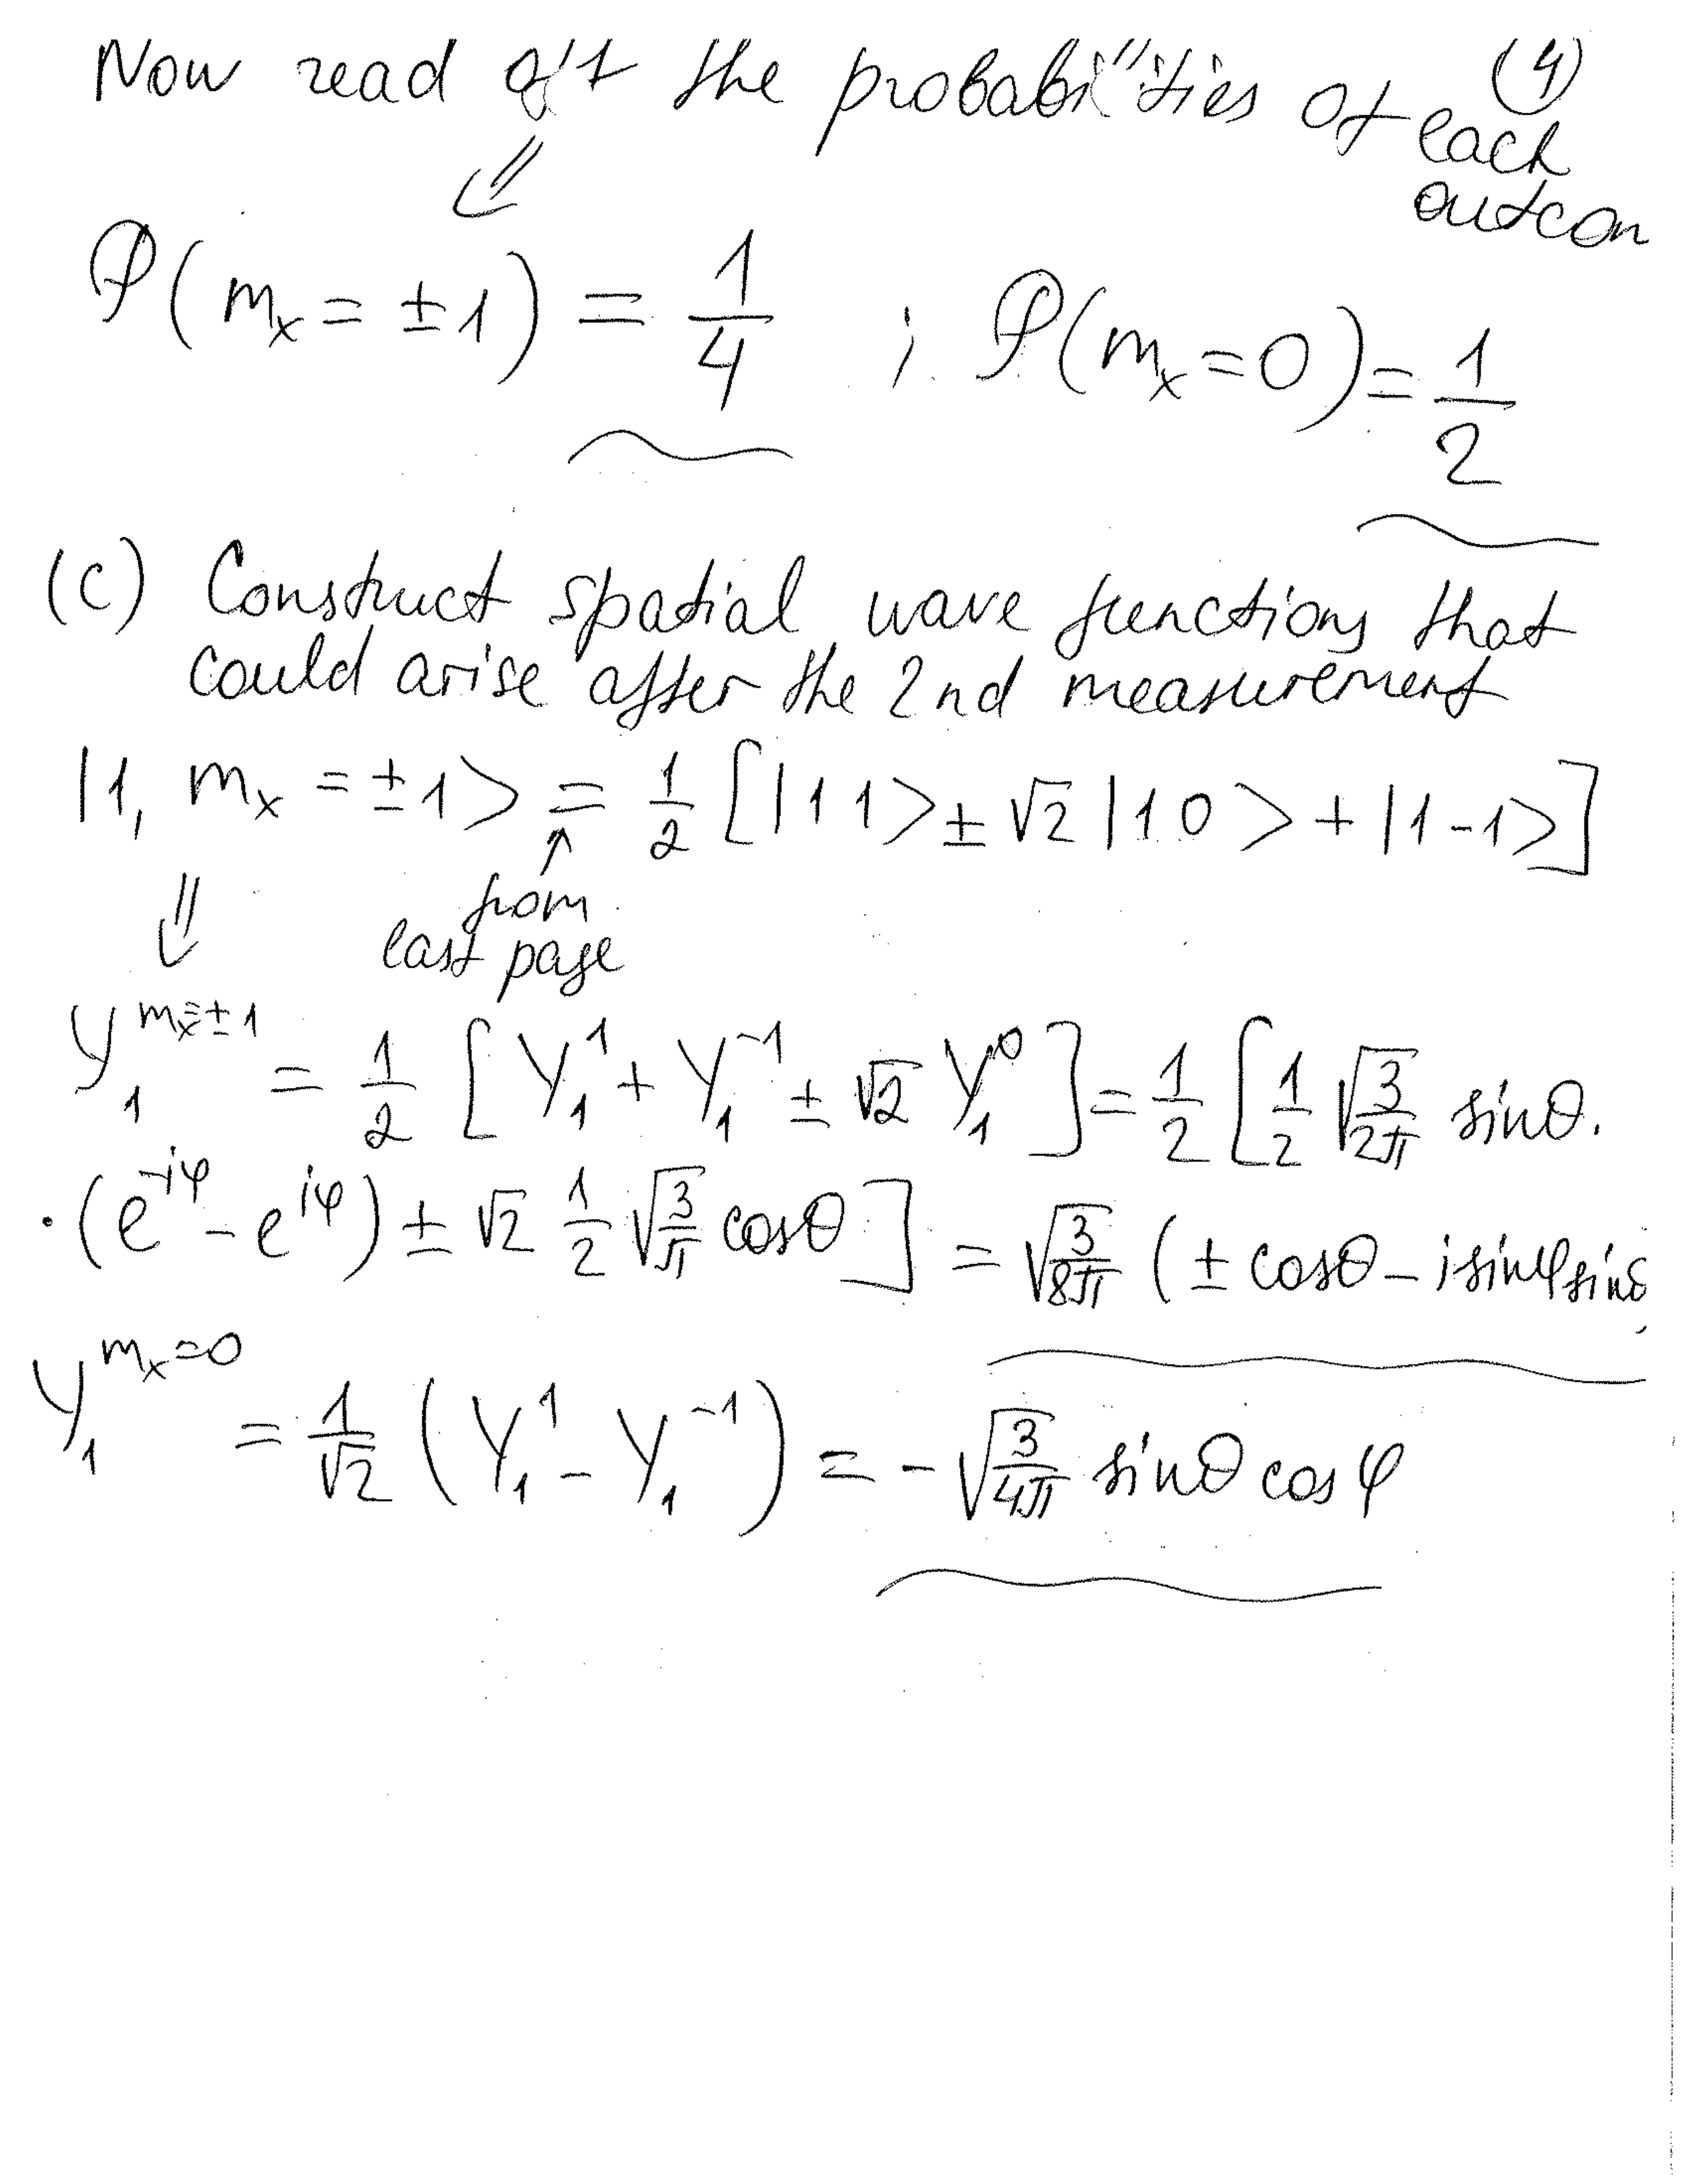 (4)
Now read off the probabilities of each
outcom
⇙
P(m_x = ±1) = 1/4 ; P(m_x = 0) = 1/2
(c) Construct spatial wave functions that
could arise after the 2nd measurement
|1, m_x = ±1> = 1/2 [|1 1> ± √2 |1 0> + |1 -1>]
⇓ ↑
from
last page
Y_1^{m_x=±1} = 1/2 [Y_1^1 + Y_1^{-1} ± √2 Y_1^0] = 1/2 [1/2 √(3/2π) sinθ ·
· (e^{-iφ} - e^{iφ}) ± √2 1/2 √(3/π) cosθ] = √(3/8π) (± cosθ - i sinφ sinθ
Y_1^{m_x=0} = 1/√2 (Y_1^1 - Y_1^{-1}) = - √(3/4π) sinθ cosφ